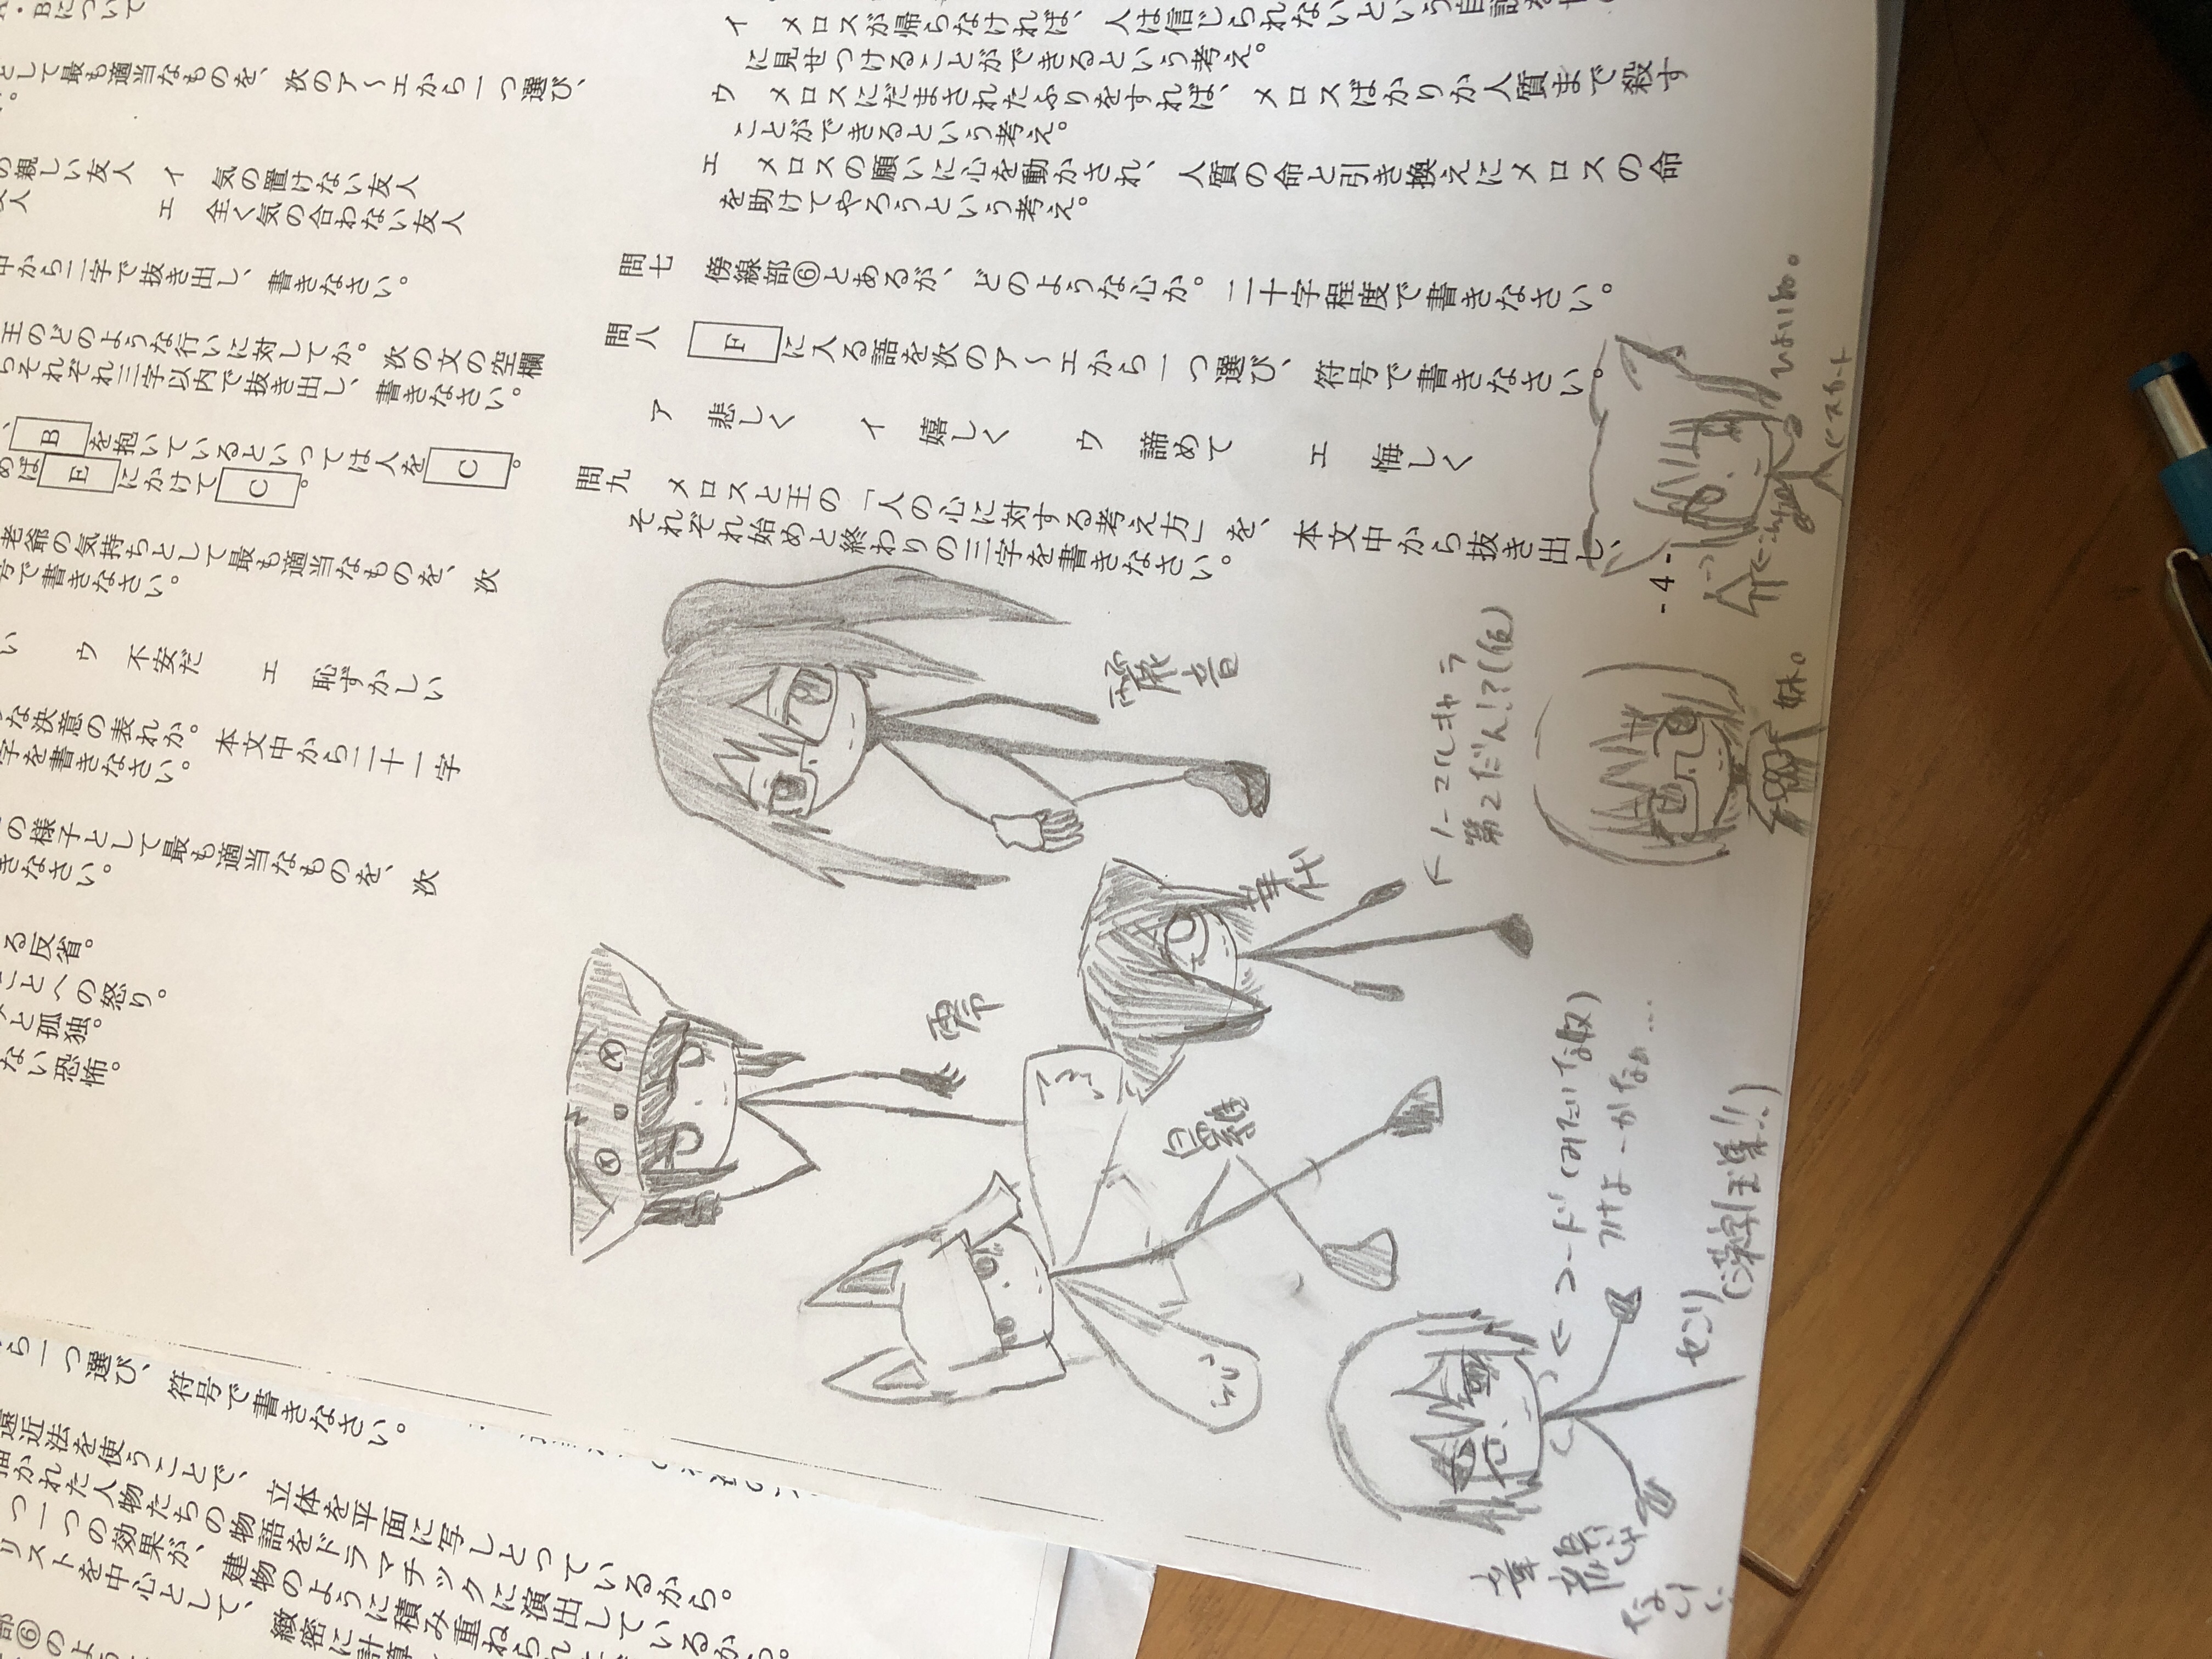 イ　メロスが帰らなければ、人は信じられないという
に見せつけることができるという考え。
ウ　メロスにだまされたふりをすれば、メロスばかりか人質まで殺す
ことができるという考え。
エ　メロスの願いに心を動かされ、人質の命と引き換えにメロスの命
を助けてやろうという考え。
問七　傍線部⑥とあるが、どのような心か。二十字程度で書きなさい。
問八　Fに入る語を次のア～エから一つ選び、符号で書きなさい。
ア　悲しく　イ　嬉しく　ウ　諦めて　エ　悔しく
問九　メロスと王の「人の心に対する考え方」を、本文中から抜き出し、
それぞれ始めと終わりの三字を書きなさい。
- 4 -
A・Bについて
として最も適当なものを、次のア～エから一つ選び、
の親しい友人　イ　気の置けない友人
友人　エ　全く気の合わない友人
中から二字で抜き出し、書きなさい。
王のどのような行いに対してか。次の文の空欄
らそれぞれ三字以内で抜き出し、書きなさい。
、Bを抱いているといっては人をC。
めばEにかけてC。
老爺の気持ちとして最も適当なものを、次
号で書きなさい。
い　ウ　不安だ　エ　恥ずかしい
な決意の表れか。本文中から二十一字
字を書きなさい。
の様子として最も適当なものを、次
きなさい。
る反省。
ことへの怒り。
と孤独。
ない恐怖。
ら一つ選び、符号で書きなさい。
遠近法を使うことで、立体を平面に写しとっているから。
描かれた人物たちの物語をドラマチックに演出しているか
つ一つの効果が、建物のように積み重ねられ
リストを中心として、緻密に計算
部⑥のよう
零
ノーマルキャラ
第2だん!?(仮)
妹。
←コード(みたいな奴)
センリ